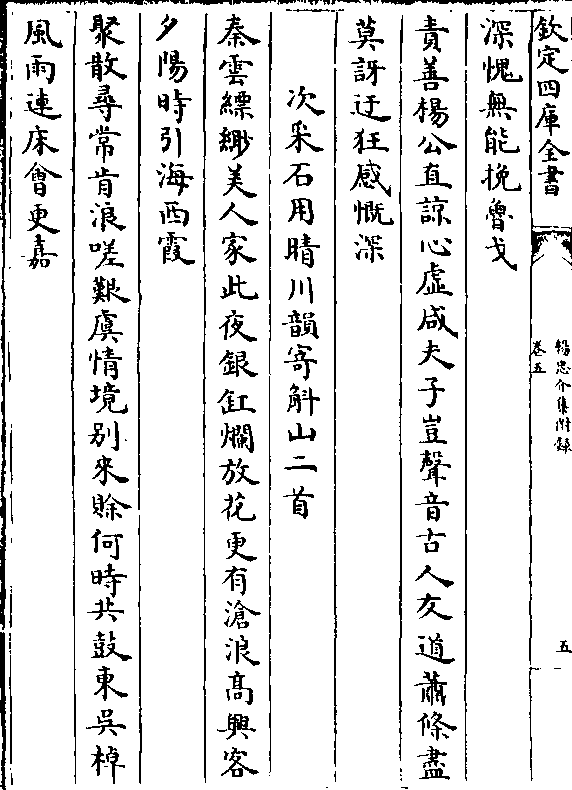 欽定四庫全書
楊忠介集附錄
卷五
五
深愧無能挽魯戈
責善楊公直諒心虛咸夫子豈聲音古人友道蕭條盡
莫訝迂狂感慨深
次采石用晴川韻寄斛山二首
秦雲縹緲美人家此夜銀缸爛放花更有滄浪高興客
夕陽時引海西霞
聚散尋常肯浪嗟艱虞情境别來賒何時共鼓東吳棹
風雨連床會更嘉